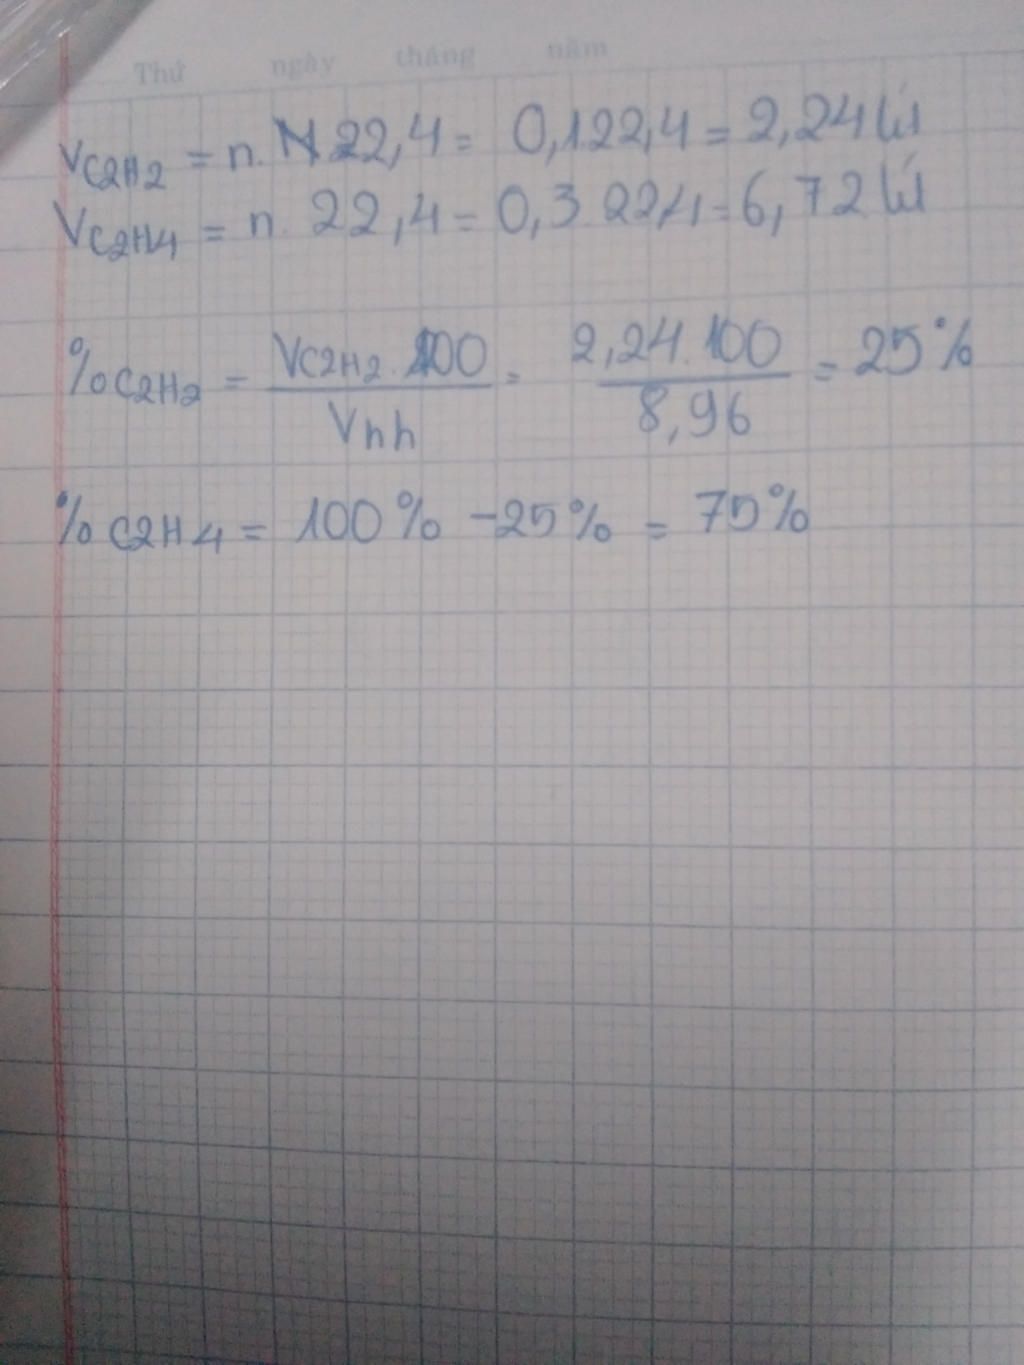 Thứ ngày tháng năm
VC2H2 = n. 22,4 = 0,1.22,4 = 2,24 lít
VC2H4 = n. 22,4 = 0,3 22,4 = 6,72 lít
%C2H2 = VC2H2.100 / Vhh = 2,24.100 / 8,96 = 25%
%C2H4 = 100% - 25% = 75%